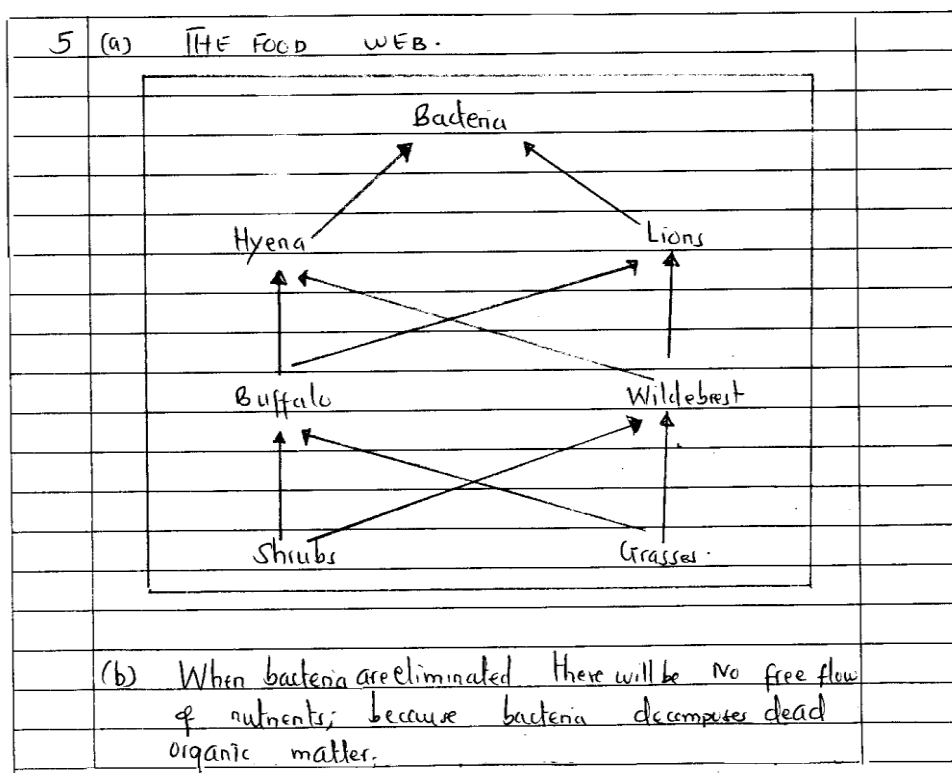 5 (a) THE FOOD WEB.
Bacteria
Hyena Lions
Buffalo Wildebest
Shrubs Grasses.
(b) When bacteria are eliminated there will be No free flow
of nutrients; because bacteria decomposes dead
organic matter.